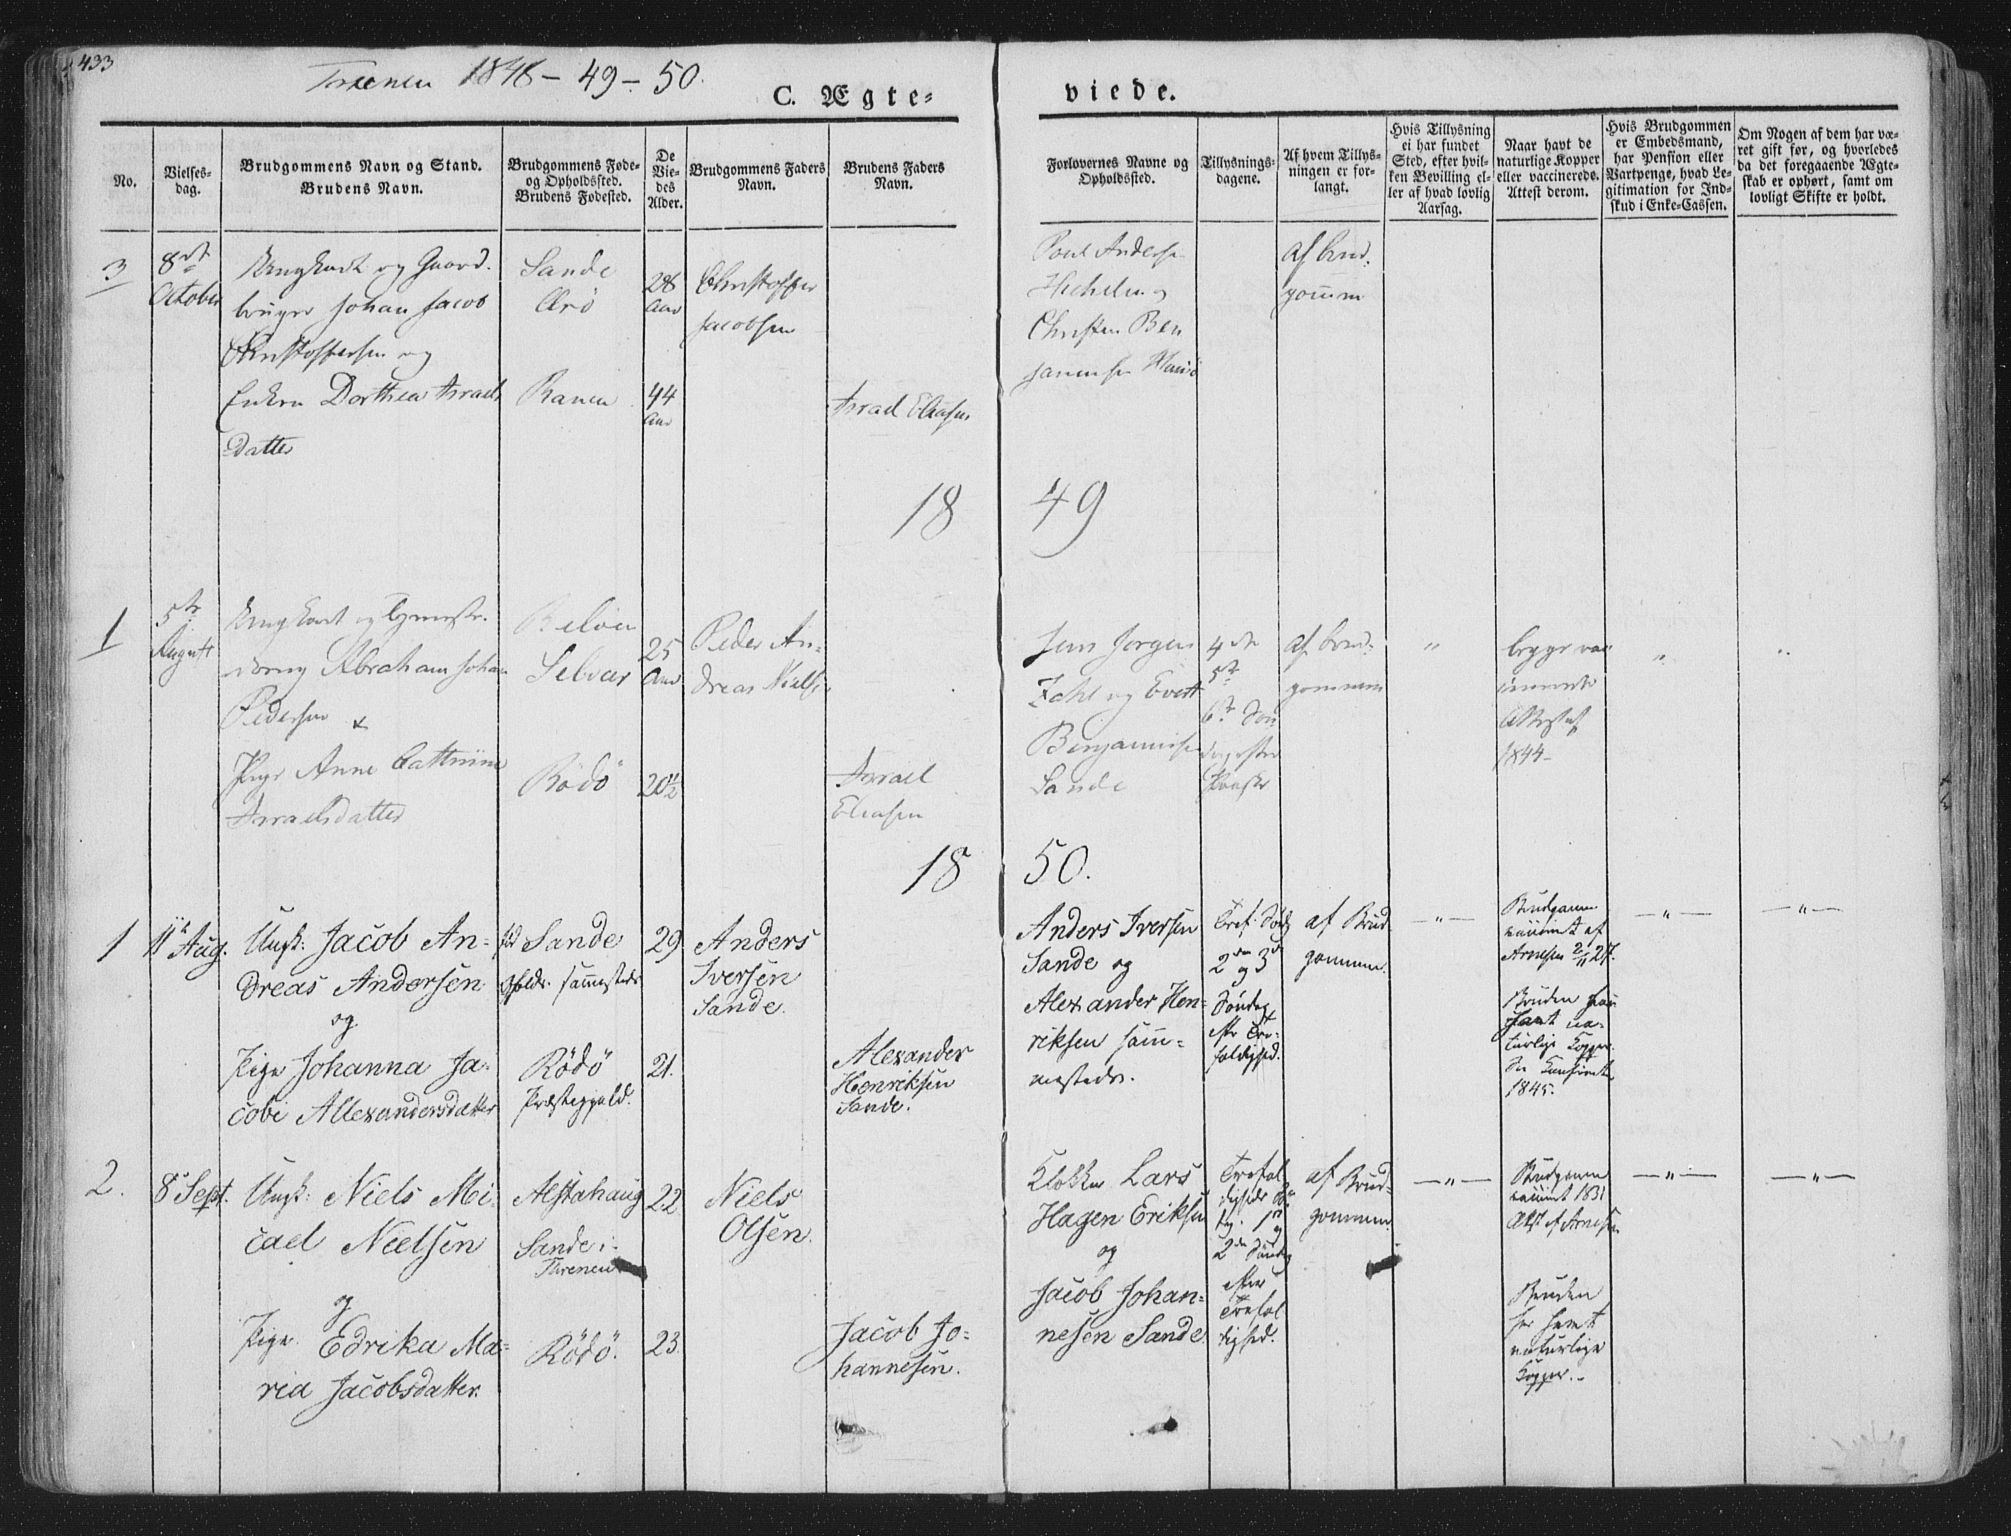 433
Trænen 1848 - 49 - 50.
C. Ægte-
viede.
No.
Vielses-
dag.
Brudgommens Navn og Stand.
Brudens Navn.
Brudgommens Føde-
og Opholdssted.
Brudens Fødested.
De
Vie-
des
Alder.
Brudgommens Faders
Navn.
Brudens Faders
Navn.
Forlovernes Navne og
Opholdssted.
Tillysnings-
dagene.
Af hvem Tillys-
ningen er for-
langt.
Hvis Tillysning
ei har fundet
Sted, efter hvil-
ken Bevilling el-
ler af hvad lovlig
Aarsag.
Naar havt de
naturlige Kopper
eller vaccinerede.
Attest derom.
Hvis Brudgommen
er Embedsmand,
har Pension eller
Vartpenge, hvad Le-
gitimation for Ind-
skud i Enke-Cassen.
Om Nogen af dem har væ-
ret gift før, og hvorledes
da det foregaaende Ægte-
skab er ophørt, samt om
lovligt Skifte er holdt.
3
8de
October
Ungkarl og Gaard-
bruger Johan Jacob
Christoffersen og
Enken Dorthea Israels
Datter
Sande
Ranen
28
Aar
44
Aar
Christoffer
Jacobsen
Israel Eliasen
Poul Andersen
og
Christen Ben
jaminsen
af Brud-
gommen
18 49
1
5te
August
Ungkarl og
Abraham Johan
Pedersen
Pige Anne Cathrine
Israelsdatter
Selvær
Rödö
25
Aar
20½
Peder An-
dreas Niels
Israel
Eliasen
Jens Jorgen
Zahl og Evert
Benjaminsen
Sande
4de
5te
6te Søn
dag efter
af Brud-
gommen
"
begge vac
cinerede
Attest af
1844-
"
"
18 50.
1
11te Aug.
Ungk: Jacob An-
dreas Andersen
og
Pige Johanna Ja-
cobi Allexandersdatter
fød Sande
opholds. sammesteds
Rödö
Præstegjeld.
29
21.
Anders
Iversen
Sande.
Alexander
Henriksen
Sande.
Anders Iversen
Sande og
Alexander Hen-
riksen sam-
mesteds.
Tref. Sönd
2den og 3de
Söndag
eftr Tre-
foldighed.
af Brud
gommen.
- " -
Brudgommen
vaccint af
Arnesen 2/11 27.
Bruden har
havt na-
turlige Kopper.
1845.
- " -
- " -
2.
8 Sept.
Ungk: Niels Mi-
cael Nielsen
og
Pige Edrika Ma-
ria Jacobsdatter.
Alstahaug
Sande i
Thrænen
Rödö.
22
23.
Niels
Olsen.
Jacob Jo-
hannesen.
Klokker Lars
Hagen Eriksen
og
Jacob Johan-
nesen Sande
Trefol
digheds Sön
dg. 1ste og
2den Söndag
efter
Trefol
dighed.
af Brud-
gommen.
- " -
Brudgommen
vaccint 1831
Attst af Arnesen
Bruden
har havt
naturlige
Kopper.-
- " -
- " -